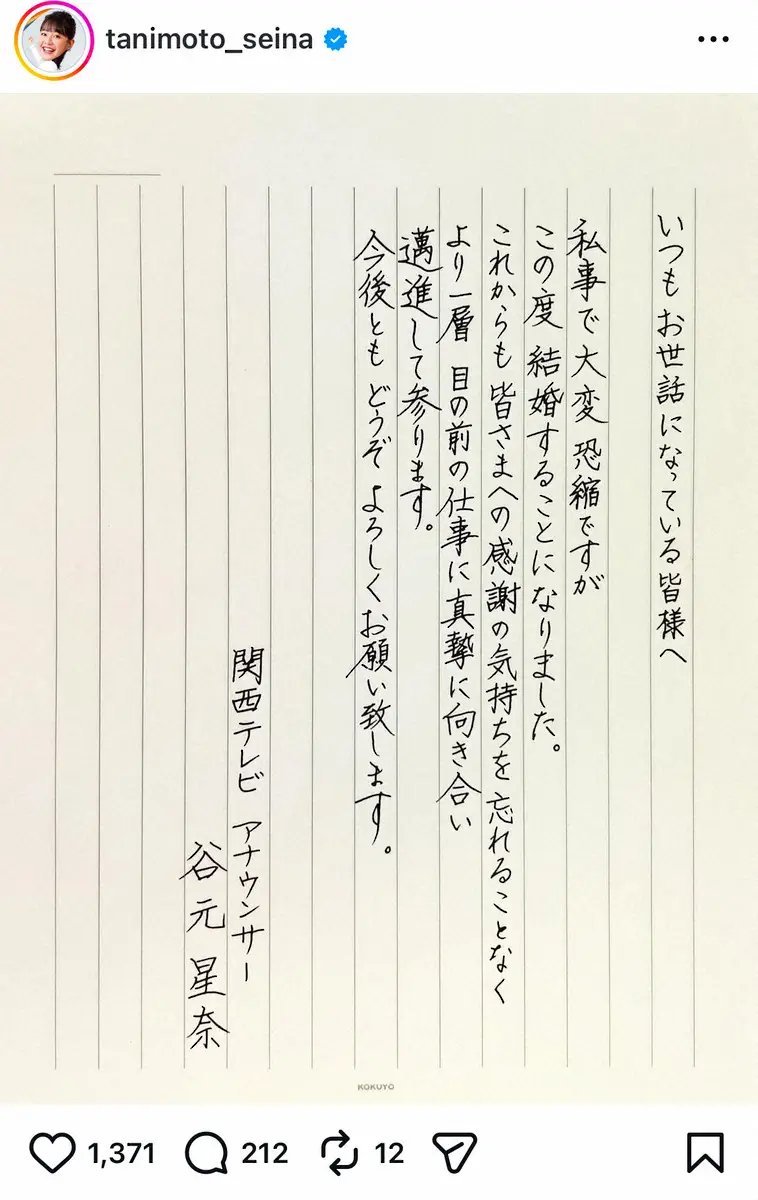 tanimoto_seina
いつもお世話になっている皆様へ
私事で大変恐縮ですが
この度 結婚することになりました。
これからも皆さまへの感謝の気持ちを忘れることなく
より一層 目の前の仕事に真摯に向き合い
邁進して参ります。
今後とも どうぞ よろしくお願い致します。
関西テレビ アナウンサー
谷元 星奈
KOKUYO
1,371
212
12